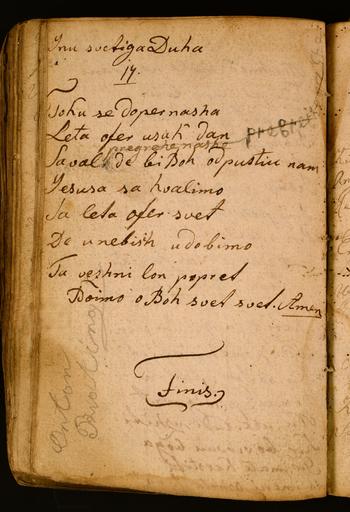 Inu svetiga Duha
17.
Tohu se doper nasha
Leta ofer usah dan
pregrehe nashe
Savall de bi Boh odpustiu nam
Jesusa sa hvalimo
Sa leta ofer svet
De unebish udobimo
Ta vezhni lon popret
Poimo o Boh svet svet. Amen
Finis.
Anton